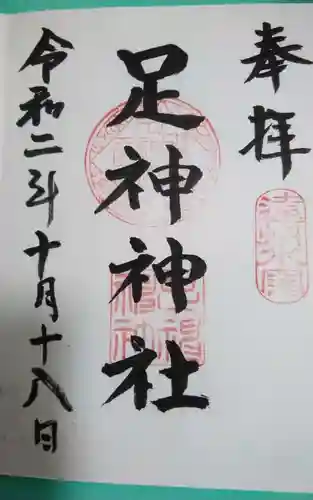 奉拝
足神神社
令和二年十月十八日